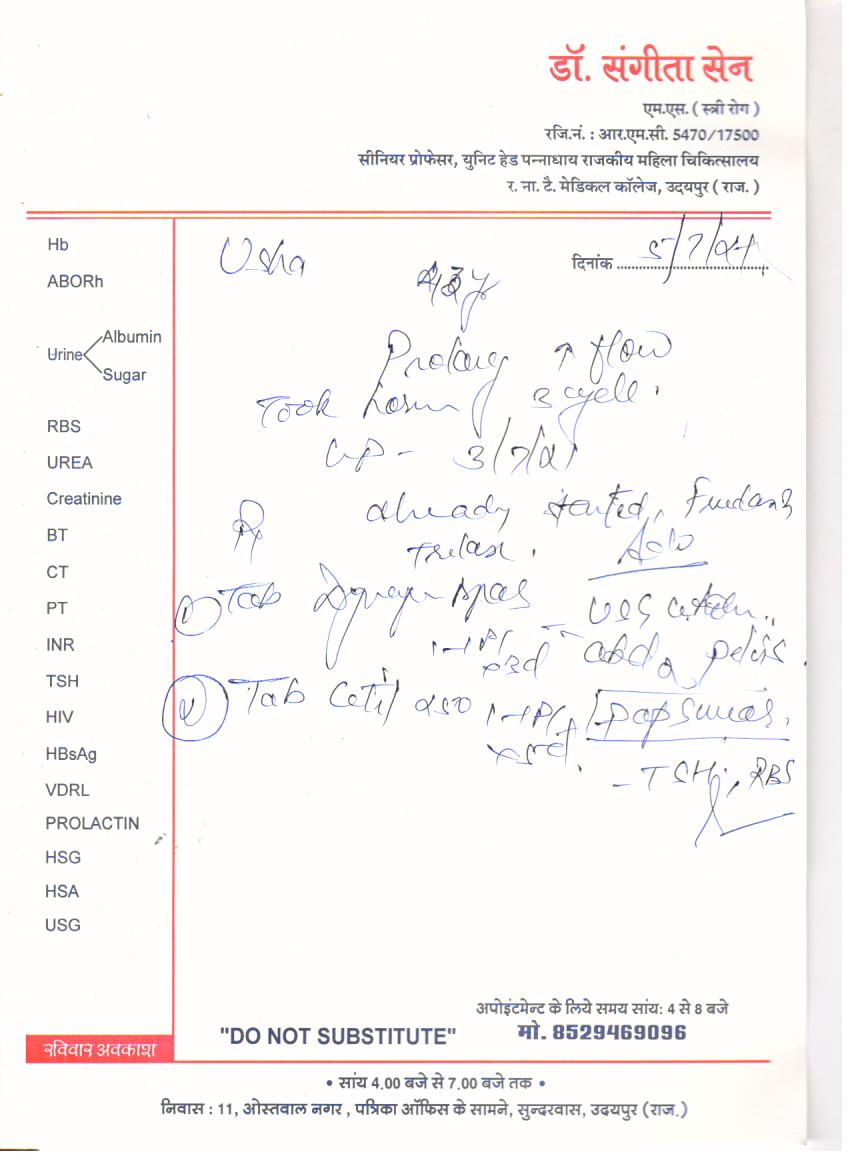 डॉ. संगीता सेन
एम.एस. ( स्त्री रोग )
रजि.नं. : आर.एम.सी. 5470/17500
सीनियर प्रोफेसर, युनिट हेड पन्नाधाय राजकीय महिला चिकित्सालय
र. ना. टै. मेडिकल कॉलेज, उदयपुर ( राज. )
Hb
ABORh
Urine Albumin
Sugar
RBS
UREA
Creatinine
BT
CT
PT
INR
TSH
HIV
HBsAg
VDRL
PROLACTIN
HSG
HSA
USG
रविवार अवकाश
Usha
दिनांक 5/7/21
Prolong ↑ flow
Took 3 cycle.
3/7/21
already started,
Rx
Adv
Tab spas
abd & pelvis.
Tab
Pap smear,
- TSH, RBS
अपोइंटमेन्ट के लिये समय सांय: 4 से 8 बजे
"DO NOT SUBSTITUTE" मो. 8529469096
• सांय 4.00 बजे से 7.00 बजे तक •
निवास : 11, ओस्तवाल नगर , पत्रिका ऑफिस के सामने, सुन्दरवास, उदयपुर (राज.)